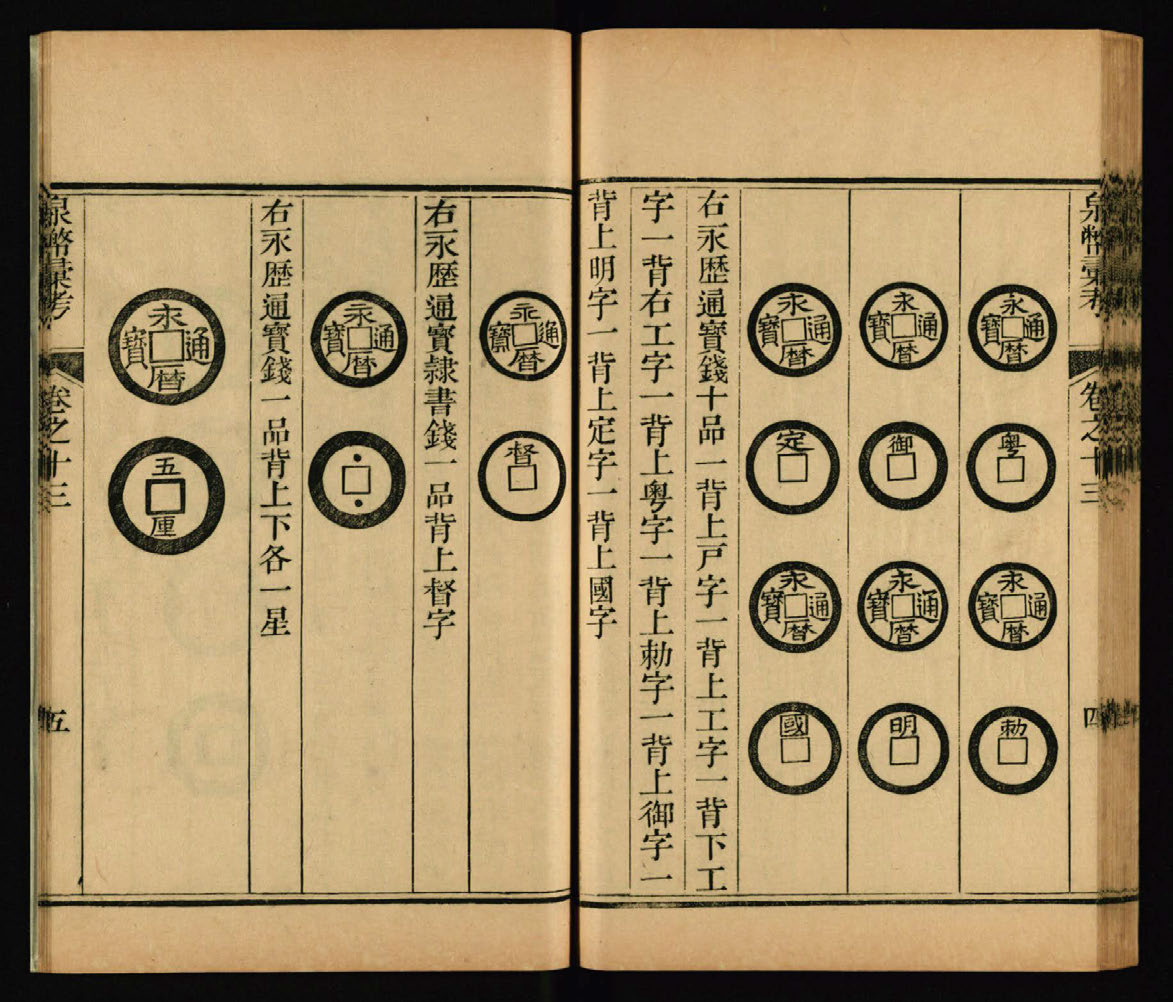 泉幣彙考
卷之十三
四
永曆通寶
粵
永曆通寶
勅
永曆通寶
御
永曆通寶
明
永曆通寶
定
永曆通寶
國
右永歷通寶錢十品一背上戸字一背上工字一背下工
字一背右工字一背上粵字一背上勅字一背上御字一
背上明字一背上定字一背上國字
永曆通寶
督
右永歷通寶隸書錢一品背上督字
永曆通寶
右永歷通寶錢一品背上下各一星
永曆通寶
五
厘
泉幣彙考
卷之十三
五